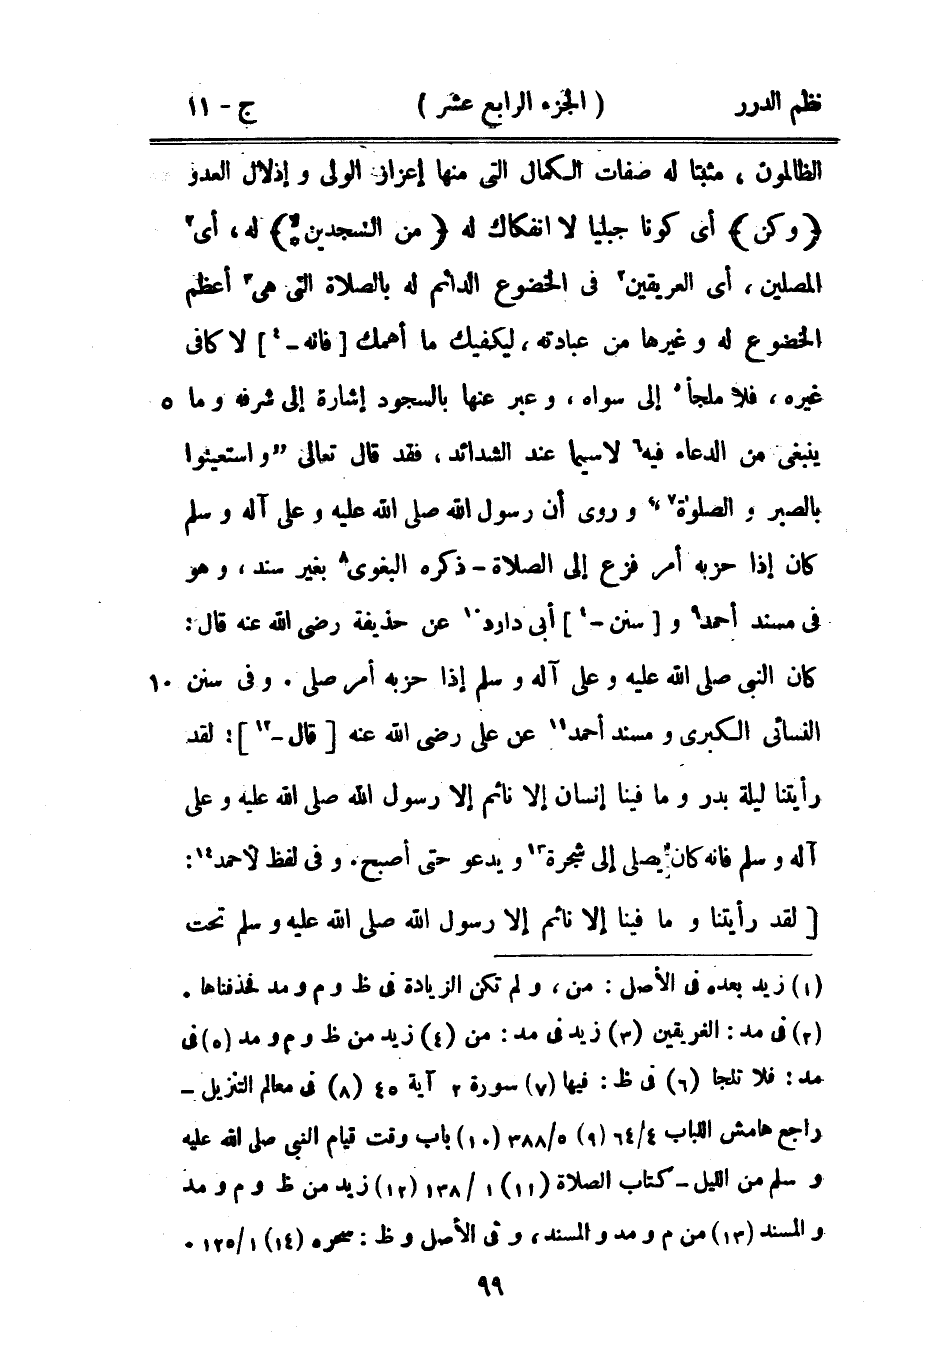 نظم الدرر ( الجزء الرابع عشر ) ج - ١١
الظالمون ، مثبتا له صفات الكمال التى منها إعزاز الولى و إذلال العدو
﴿ و كن ﴾ أى كونا جبليا لا انفكاك له ﴿ من السٰجدين ﴾ له ، أى٢
المصلين ، أى العريقين٢ فى الخضوع الدائم له بالصلاة التى هى٣ أعظم
الخضوع له و غيرها من عبادته ، ليكفيك ما أهمك [ فانه ـ ٤ ] لا كافى
غيره ، فلا ملجأ٥ إلى سواه ، و عبر عنها بالسجود إشارة إلى شرفه و ما ٥
ينبغى من الدعاء فيه٦ لاسيما عند الشدائد ، فقد قال تعالى ”و استعينوا
بالصبر و الصلوٰة٧“ و روى أن رسول الله صلى الله عليه و على آله و سلم
كان إذا حزبه أمر فزع إلى الصلاة ـ ذكره البغوى٨ بغير سند ، و هو
فى مسند أحمد٩ و [ سنن ـ ٤ ] أبى داود١٠ عن حذيفة رضى الله عنه قال :
كان النبى صلى الله عليه و على آله و سلم إذا حزبه أمر صلى . و فى سنن ١٠
النسائى الكبرى و مسند أحمد١١ عن على رضى الله عنه [ قال ـ ١٢ ] : لقد
رأيتنا ليلة بدر و ما فينا إنسان إلا نائم إلا رسول الله صلى الله عليه و على
آله و سلم فانه كان يصلى إلى شجرة١٣ و يدعو حتى أصبح . و فى لفظ لأحمد١٤ :
[ لقد رأيتنا و ما فينا إلا نائم إلا رسول الله صلى الله عليه و سلم تحت
(١) زيد بعده فى الأصل : من ، و لم تكن الزيادة فى ظ و م و مد فحذفناها .
(٢) فى مد : الفريقين (٣) زيد فى مد : من (٤) زيد من ظ و م و مد (٥) فى
مد : فلا تلجا (٦) فى ظ : فيها (٧) سورة ٢ آية ٤٥ (٨) فى معالم التنزيل ـ
راجع هامش اللباب ٦٤/٤ (٩) ٣٨٨/٥ (١٠) باب وقت قيام النبى صلى الله عليه
و سلم من الليل ـ كتاب الصلاة (١١) ١ / ١٣٨ (١٢) زيد من ظ و م و مد
و المسند (١٣) من م و مد و المسند ، و فى الأصل و ظ : سحره (١٤) ١٢٥/١ .
٩٩